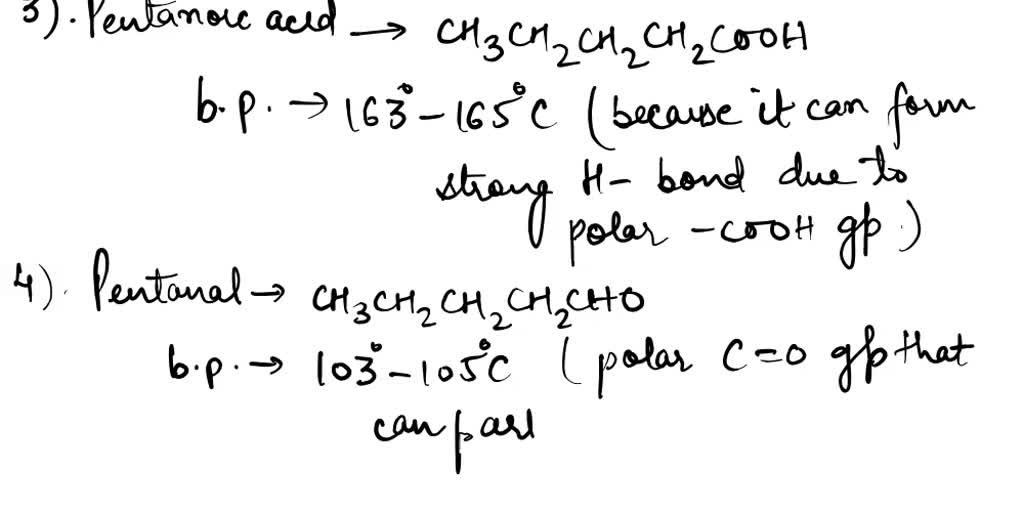 3). Pentanoic acid → CH₃CH₂CH₂CH₂COOH
b.p. → 163° - 165°C (because it can form
strong H- bond due to
polar -COOH gp.)
4). Pentanal → CH₃CH₂CH₂CH₂CHO
b.p. → 103° - 105°C (polar C=O gp that
can part